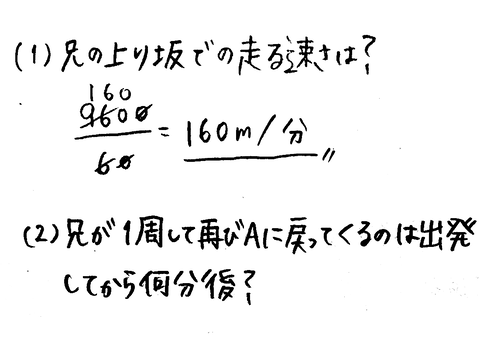 (1) 兄の上り坂での走る速さは?
160
9600
60 = 160m/分
(2) 兄が1周して再びAに戻ってくるのは出発
してから何分後?